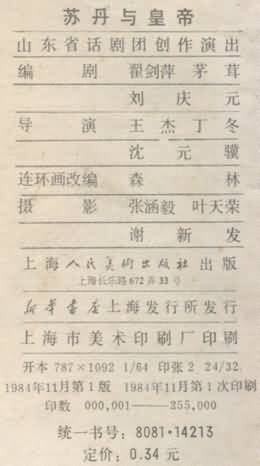 苏丹与皇帝
山东省话剧团创作演出
编 剧 翟剑萍 茅茸
刘庆元
导 演 王杰 丁冬
沈元骥
连环画改编 森林
摄 影 张涵毅 叶天荣
谢新发
上海人民美术出版社出版
上海长乐路672弄33号
新华书店上海发行所发行
上海市美术印刷厂印刷
开本 787×1092 1/64 印张 2 24/32
1984年11月第1版 1984年11月第1次印刷
印数 000,001——255,000
统一书号：8081·14213
定价：0.34 元